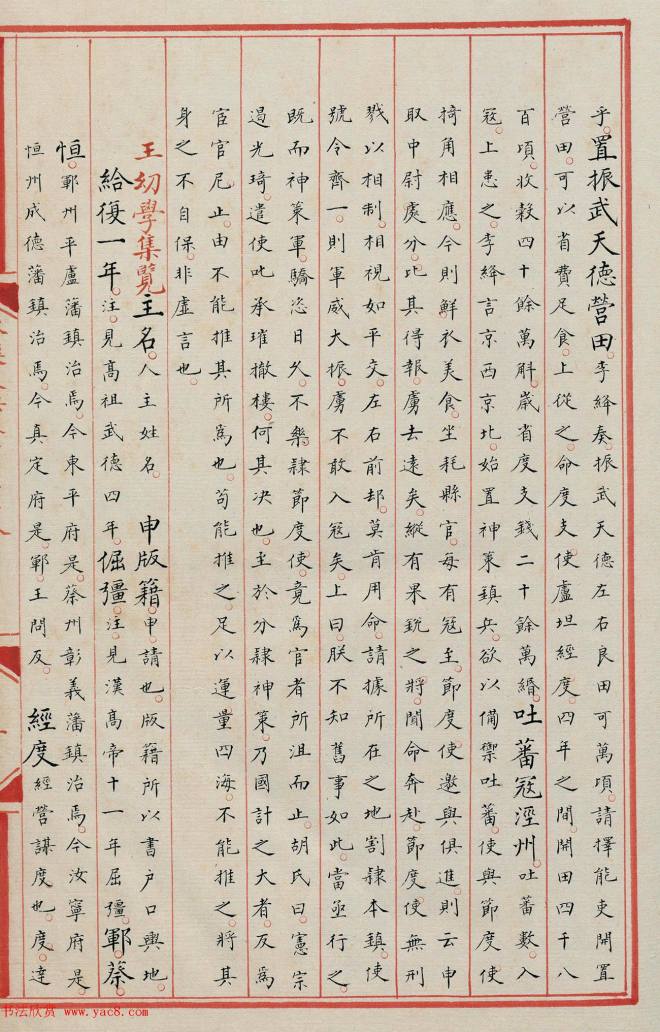 乎置振武天德營田李絳奏振武天德左右良田可萬頃請擇能吏開置
營田可以省費足食上從之命度支使盧坦經度四年之間開田四千八
百頃收穀四十餘萬斛歲省度支錢二十餘萬緡吐蕃寇涇州吐蕃數入
寇上患之李絳言京西京北始置神策鎮兵欲以備禦吐蕃使與節度使
掎角相應今則鮮衣美食坐耗縣官每有寇至節度使邀與俱進則云申
取中尉處分比其得報虜去遠矣縱有果銳之將聞命奔赴節度使無刑
戮以相制相視如平交左右前却莫肯用命請據所在之地割隸本鎮使
號令齊一則軍威大振虜不敢入寇矣上曰朕不知舊事如此當亟行之
既而神策軍驕恣日久不樂隸節度使竟爲宦者所沮而止胡氏曰憲宗
過光琦遣使叱承璀撤樓何其决也至於分隸神策乃國計之大者反爲
宦官尼止由不能推其所爲也苟能推之足以運量四海不能推之將其
身之不自保非虛言也
王幼學集覽主名人主姓名 申版籍申請也版籍所以書户口輿地
給復一年注見高祖武德四年倔彊注見漢高帝十一年屈彊鄆蔡
恒鄆州平盧藩鎮治焉今東平府是蔡州彰義藩鎮治焉今汝寧府是
恒州成德藩鎮治焉今真定府是鄆王問反 經度經營謀度也度達
书法欣赏 www.yac8.com